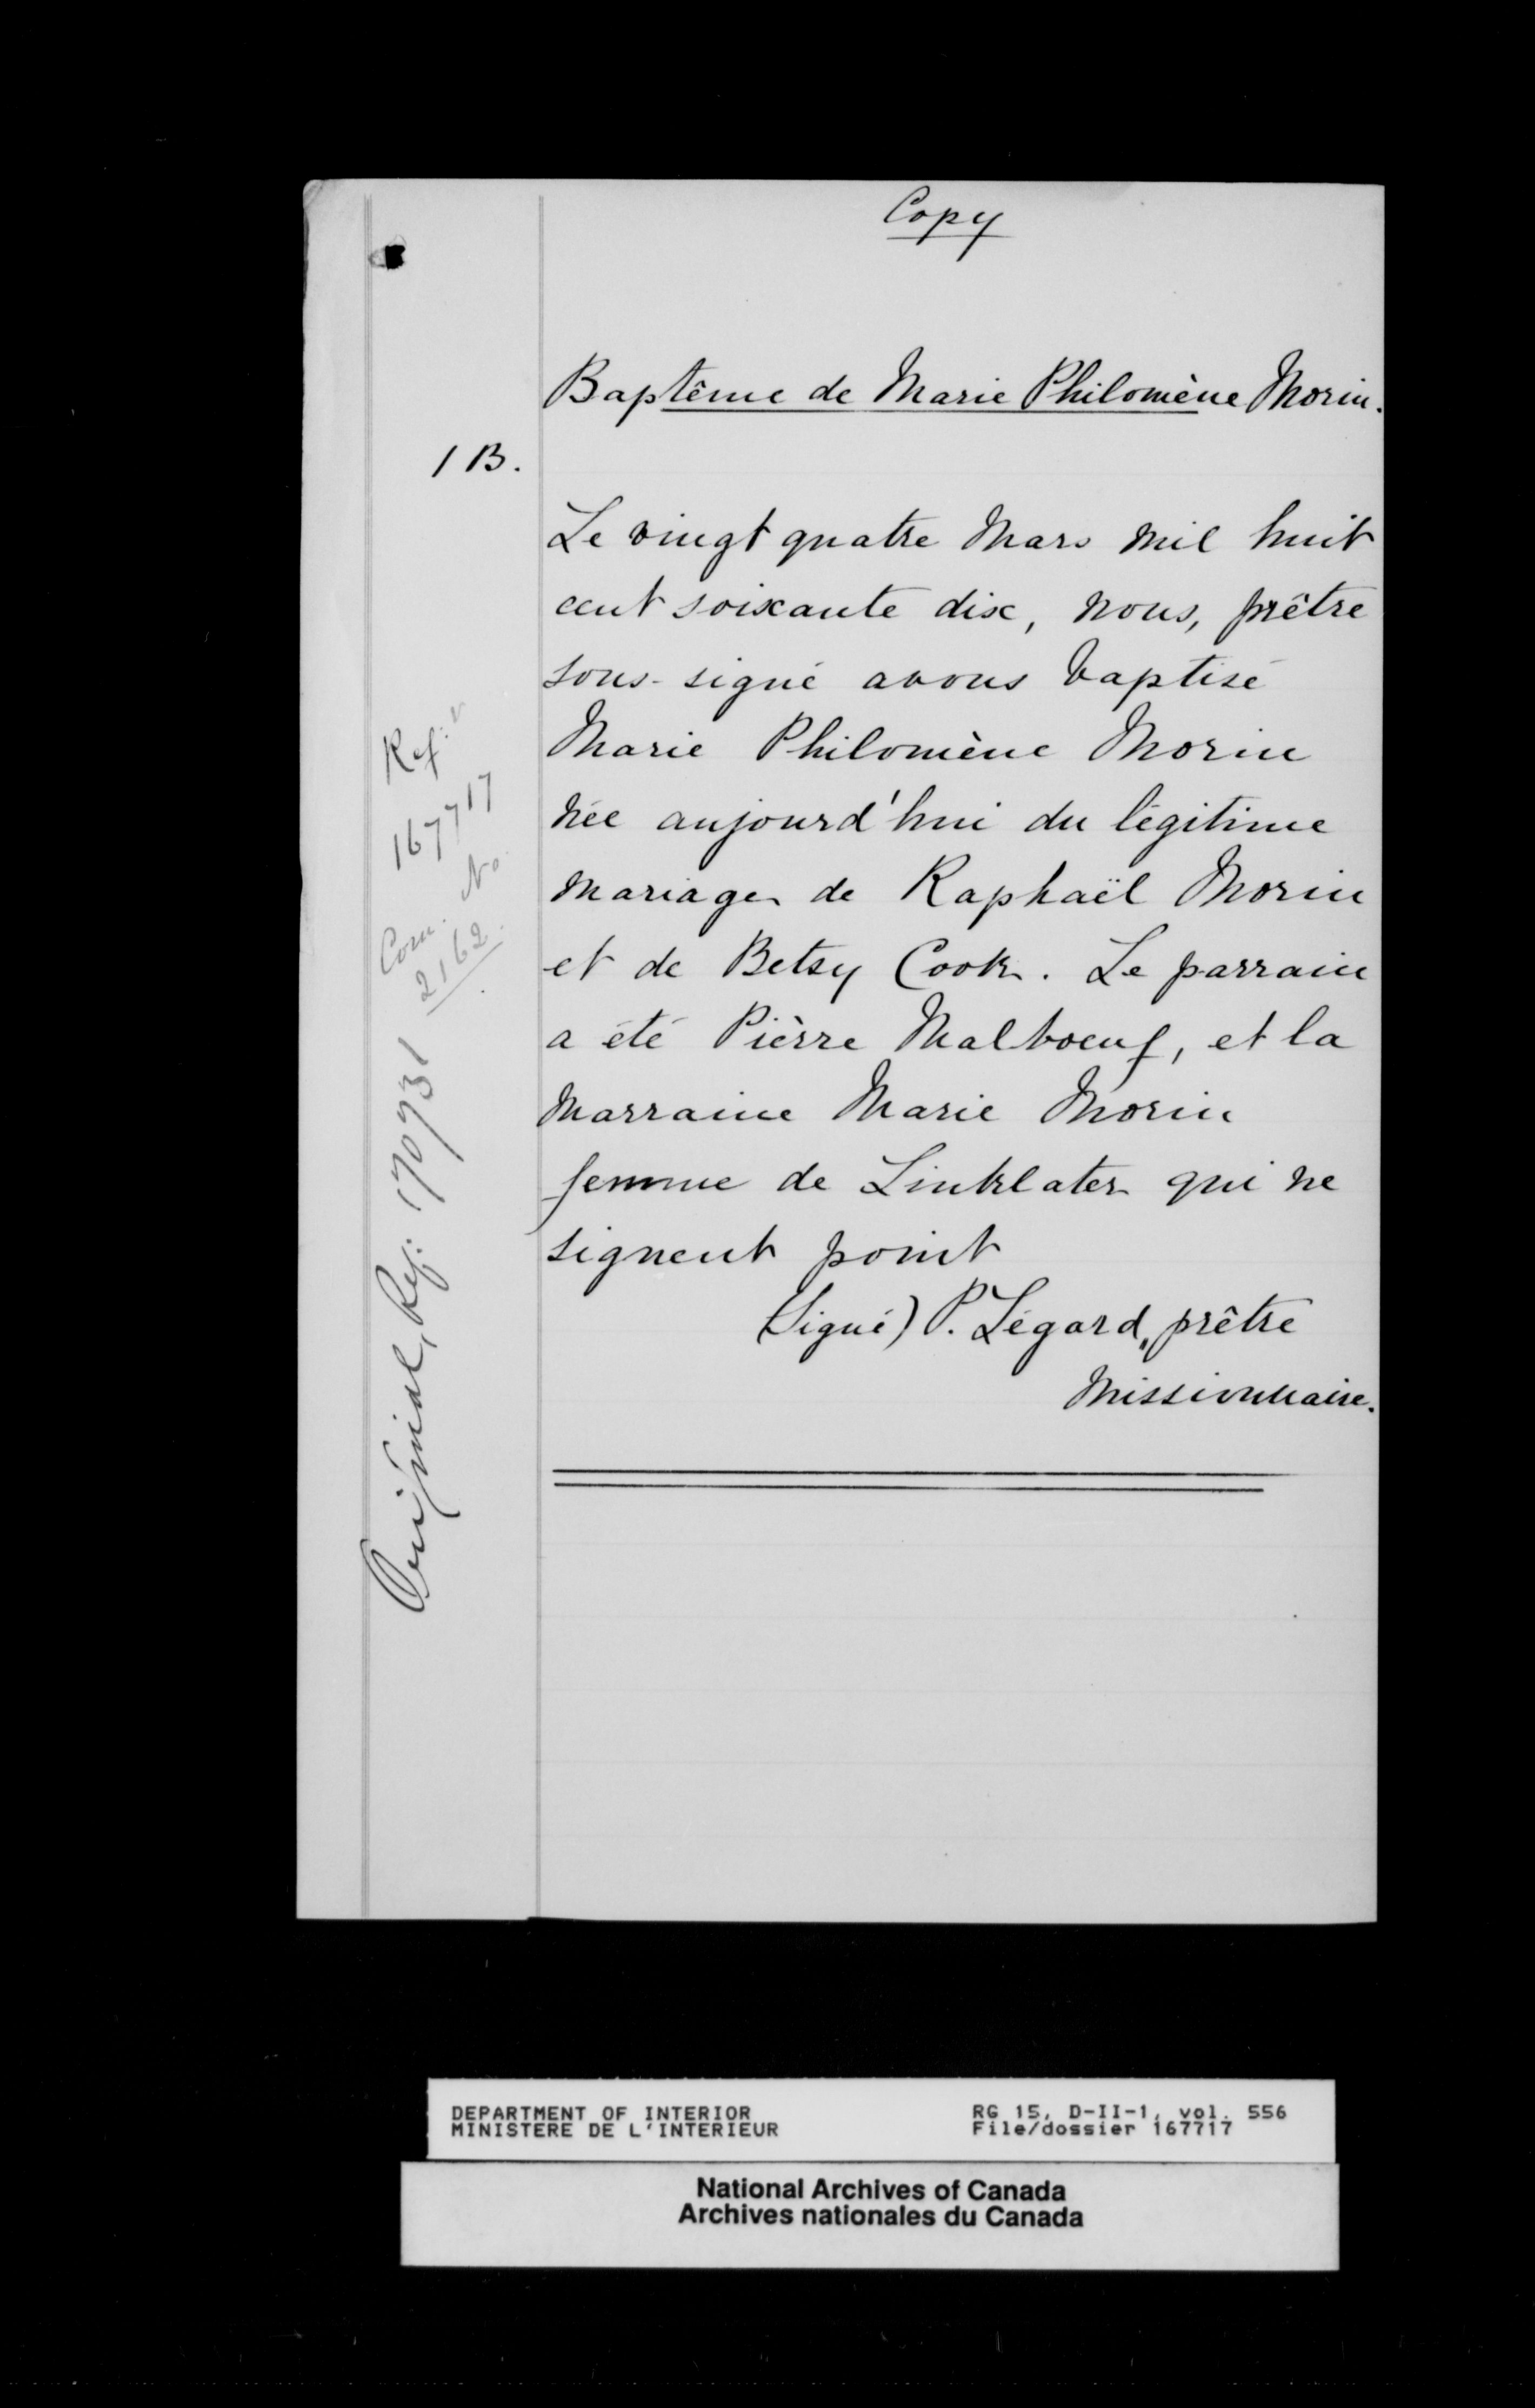 Copy
Baptême de Marie Philomène Morin.
1 B.
Le vingt quatre Mars mil huit
cent soixante dix, nous, prêtre
sous-signé avons baptisé
Marie Philomène Morin
née aujourd'hui du légitime
mariage de Raphaël Morin
et de Betsy Cook. Le parrain
a été Pièrre Malboeuf, et la
marraine Marie Morin
femme de Linklater qui ne
signent point
(Signé) P. Légard, prêtre
Missionnaire.
Ref:
167717
Com. No.
2162.
Original, Ref: 170731
DEPARTMENT OF INTERIOR
MINISTERE DE L'INTERIEUR
RG 15, D-II-1, vol. 556
File/dossier 167717
National Archives of Canada
Archives nationales du Canada